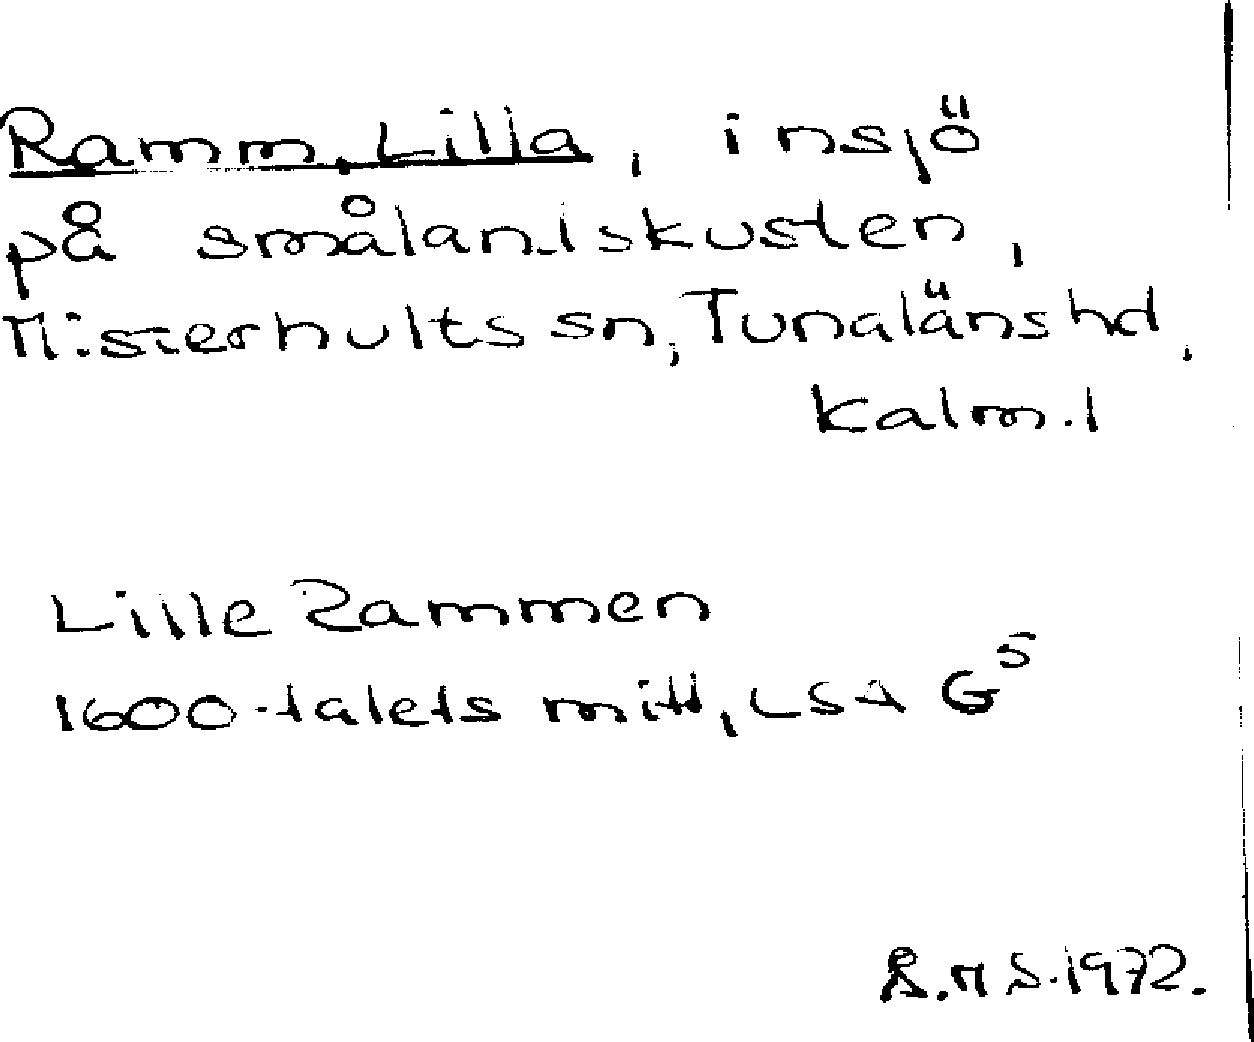 Ramm, Lilla, insjö
på smålandskusten,
Misterhults sn, Tunaläns hd,
Kalm. l
Lille Rammen
1600-talets mitt, LSA G5
R.M S. 1972.